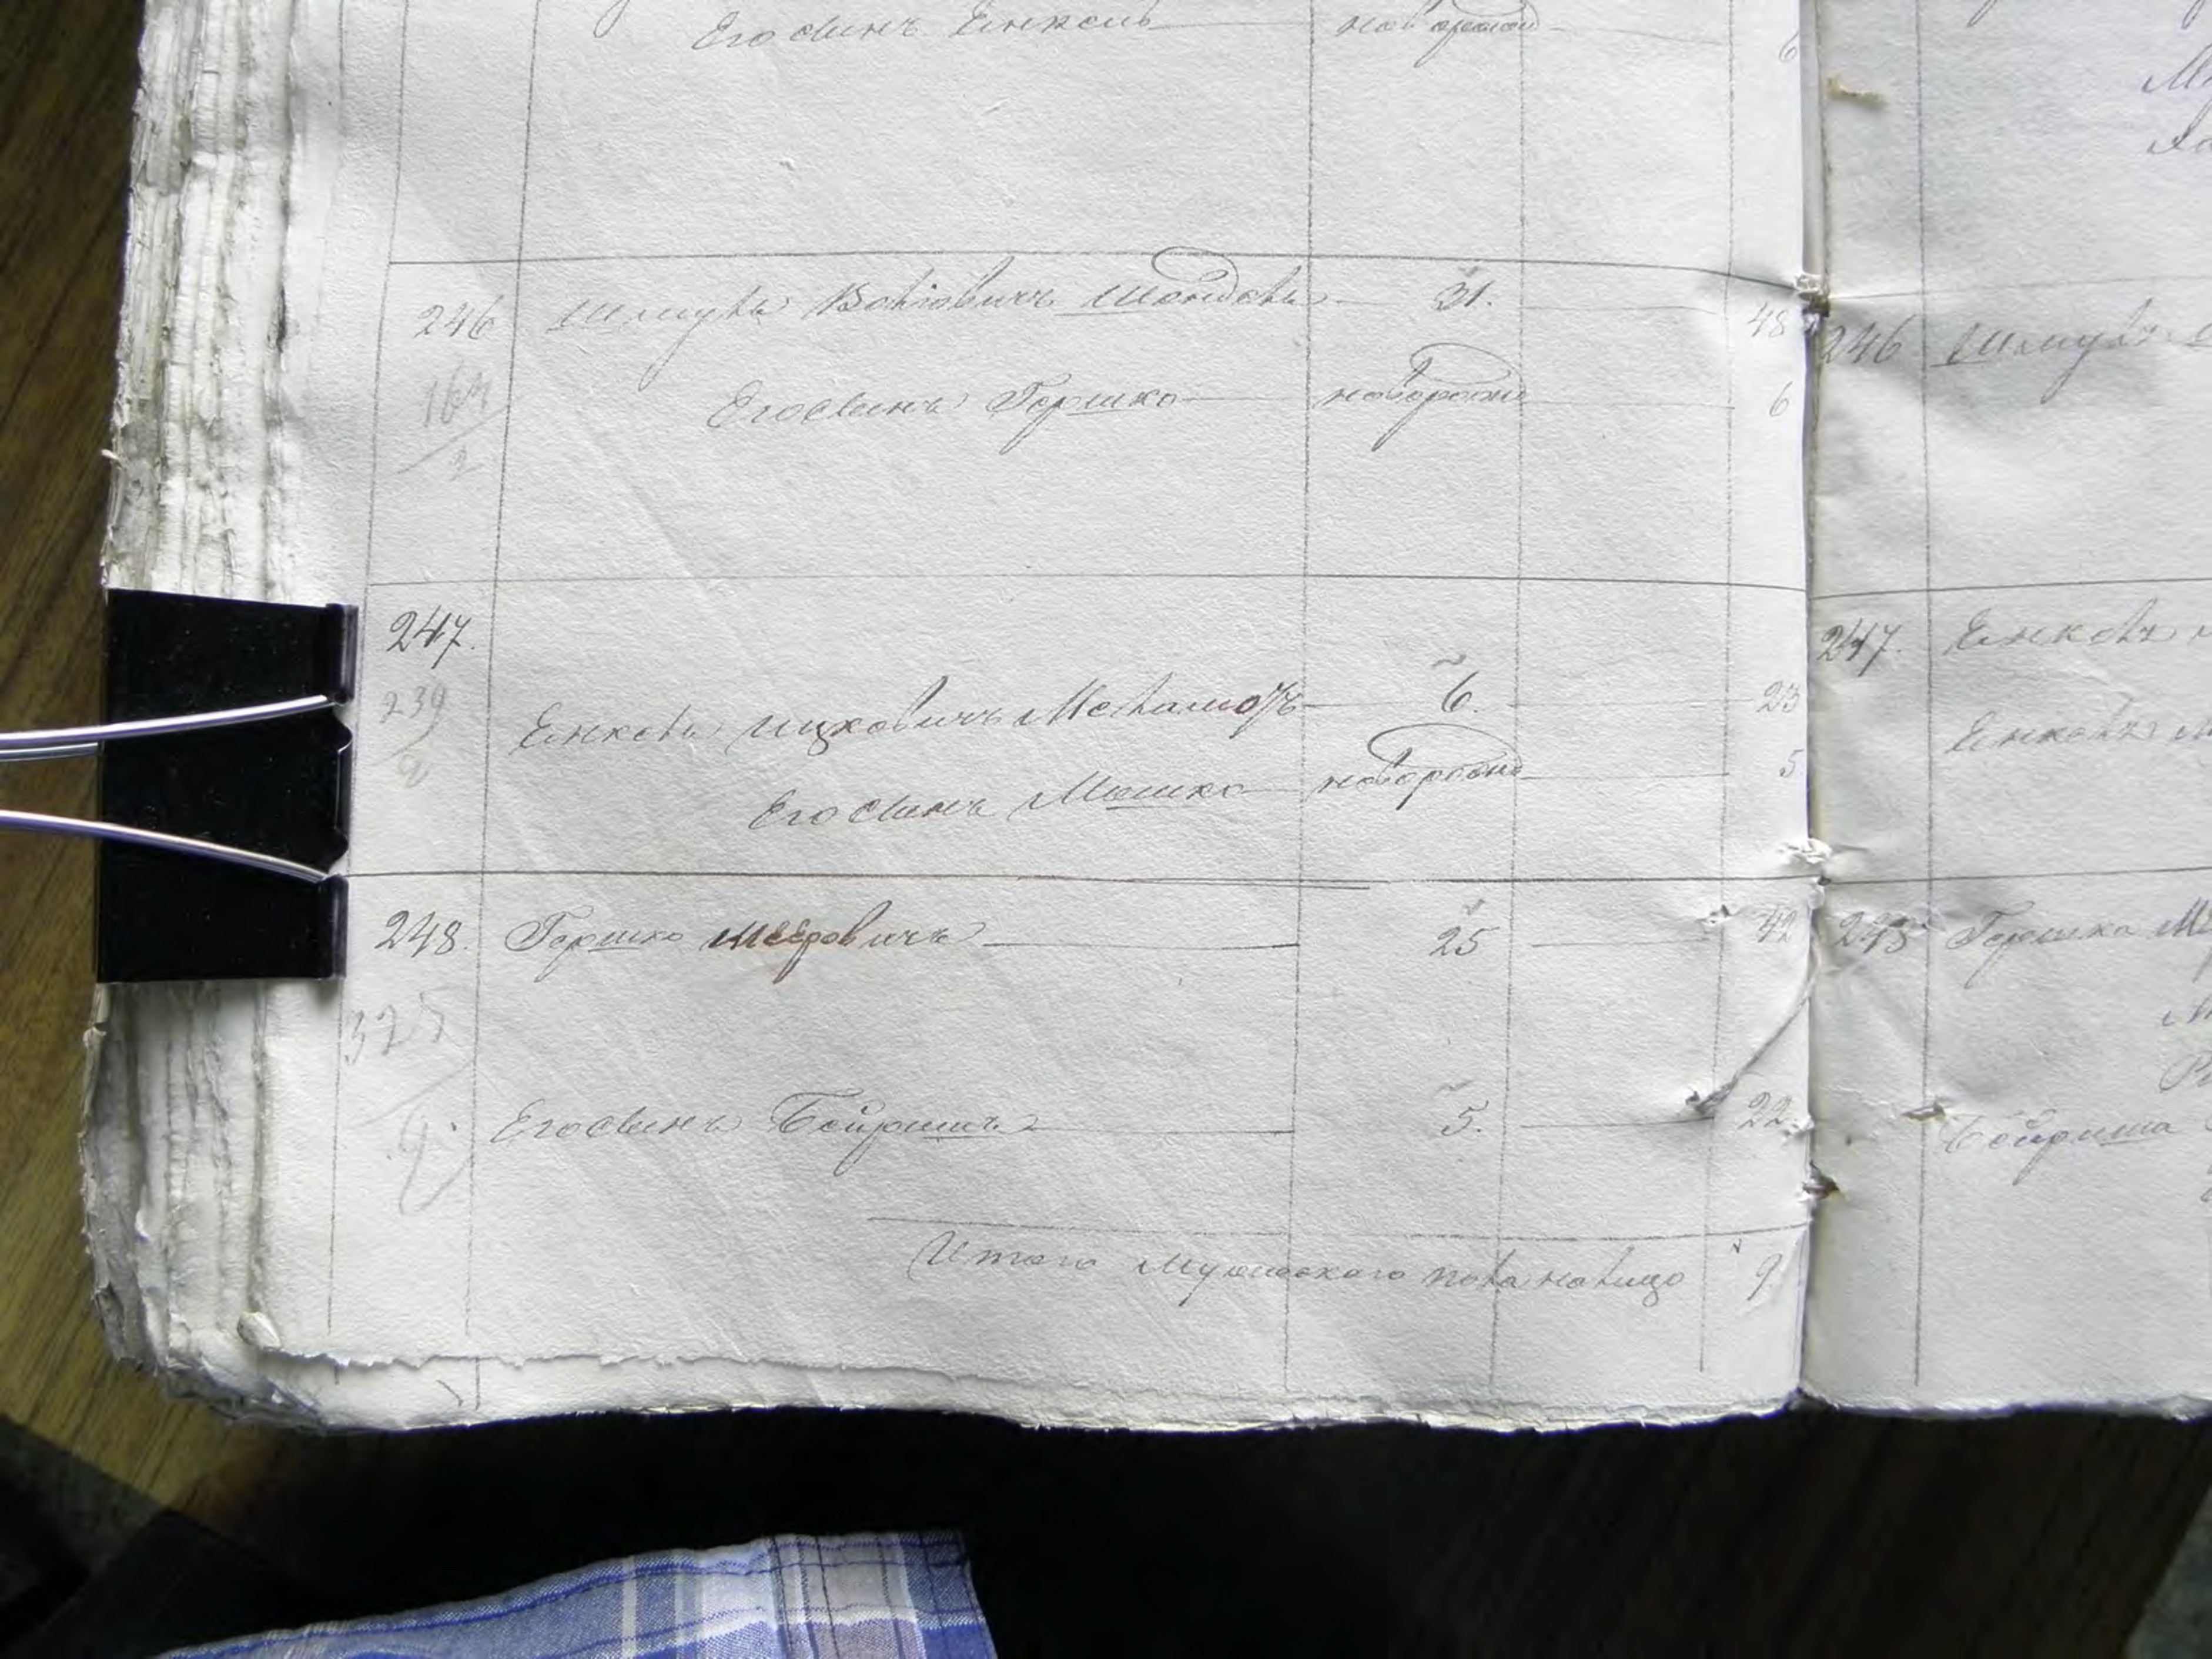 Его сынъ Енкель новорожд 6
246 Шмуль Вольговичъ Шандаль 31. 48
164/2 Его сынъ Гершко новорожд 6
247.
239/2 Енкель Ицковичъ Меламотъ 6. 23
Его сынъ Мошко новорожд 5
248. Гершко Меєровичъ 25 42
325/2 Его сынъ Бейришъ 5. 22.
Итого мужескаго пола налицо 9.
246 Шмуля
247. Енкеля
Енкеля
248 Гершка М
Бейриша